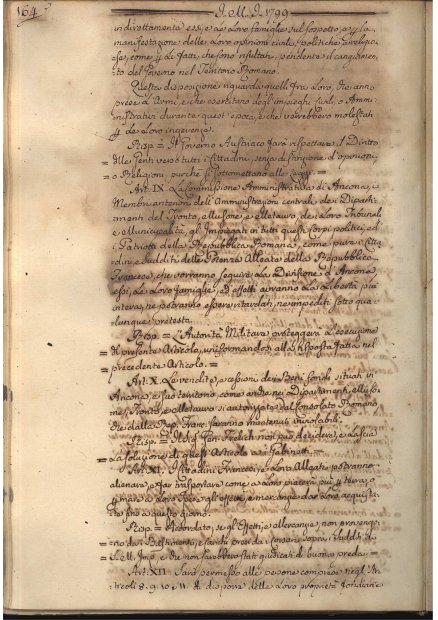 164
I. M. I. 1799
indirettamente essi, e le Loro famiglie sul sospetto, o p la
manifestazione delle Loro opinioni civili, politiche, e religio-
se, come p di fatti, che sono risultati, pendente il cangiamen-
to del Governo nel Territorio Romano.
Questa disposizione riguarda quelli fra Loro, che anno
prese l'Armi, e che esercitano degli impieghi Civili, o Ammi-
nistrativi durante quest'epoca, e che verrebbero molestati
p le Loro ingerenze.
Risp. = Il Governo Austriaco farà rispettare il Diritto
delle Genti verso tutti i Cittadini, senza distinzione d'opinioni,
o Religioni, purchè si sottomettano alle Leggi. =
Art. IX. La Commissione Amministrativa di Ancona, i
Membri anteriori dell'Amministrazioni centrali de' Diparti-
menti del Tronto, e Musone, e Metauro, de' Loro Tribunali
e Municipalità, gl'Impiegati in tutti questi Corpi politici, ed
i Patrioti della Repubblica Romana, come pure i Citta-
dini, e Sudditi delle Potenze Alleate della Repubblica
Francese, che vorranno seguire la Divisione d'Ancona
essi, le Loro famiglie, ed effetti avranno la Libertà più
intera, ne potranno essere ritardati, ne impediti sotto qua-
lunque pretesto.
Risp. = L'Autorità Militare proteggerà l'esecuzione
del presente Articolo, uniformandosi alla Risposta fatta nel
precedente Articolo. =
Art. X. Le vendite, e cessioni de' Beni fondi situati in
Ancona, e suo territorio, come anche nei Dipartimenti del Mu-
sone, Tronto, e Metauro si autorizzate dal Consolato Romano
che dalla Rep. Franc. saranno mantenute inviolabili.
Risp. = Il Sig. Gen. Frelich non può decidere, e lascia
la soluzione di questi Articolo a' Gabinetti. =
Art. XI. I Cittadini Francesi, e Loro Allegati potranno
alienare, e far trasportare come a loro piacerà p terra, o
p mare a Loro Spese gli effetti, e mercanzie da Loro acquista-
te fino a questo giorno.
Risp. = Accordato, se gl'Effetti, e Mercanzie, non provenge-
no da' Bastimenti, e carichi presi da' Corsari sopra i Sudditi di
S. M. Imp., e che non sarebbero state giudicati di buona preda =
Art. XII. Sarà permesso alle persone comprese negl'Ar-
ticoli 8. 9. 10. e 11. di disporre delle Loro proprietà fondiarie